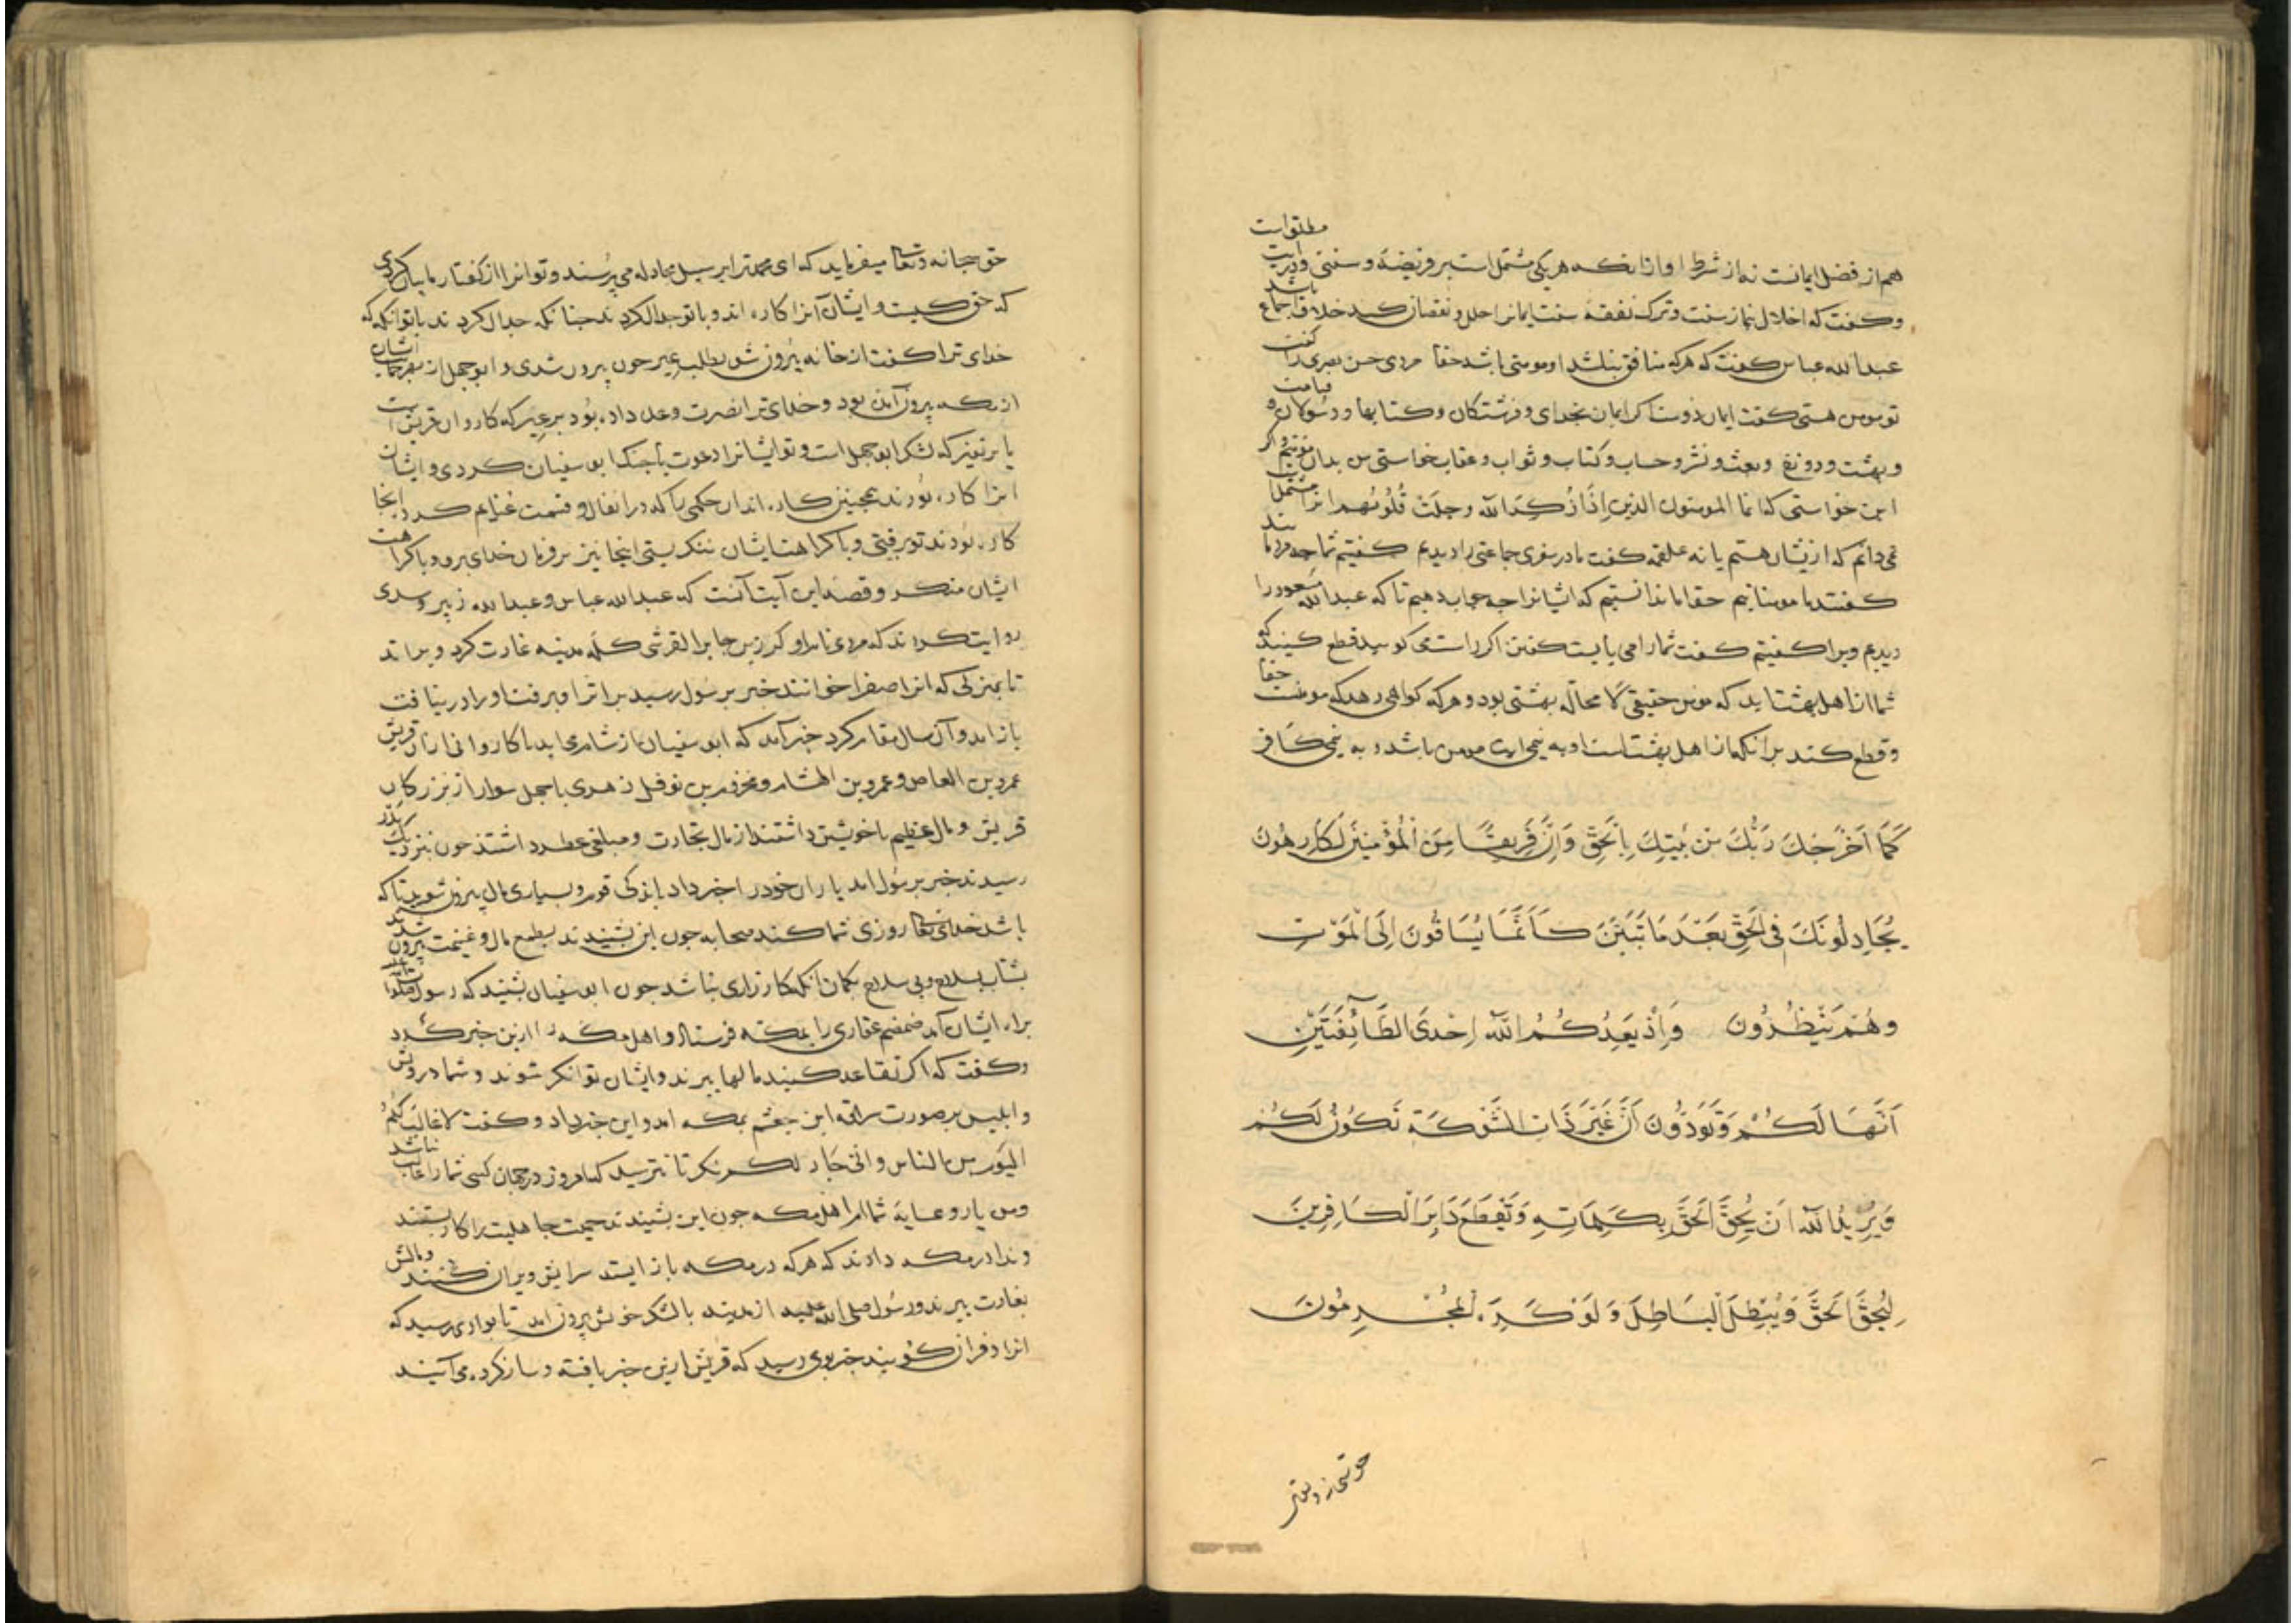 هم از فضل ایمانست نه از شرط او از انکه هر یکی مشتمل است بر فریضه و سنتی و درین مطلق است
و گفت که اخلال نماز سنت و ترک نفقهٔ سنت ایمانرا خلل و نقصان کند خلاف اجماع باشد
عبدالله عباس گفت که هر که منافق نباشد او مومنی باشد حقا مردی حسن بصری را گفت
تو مومن هستی گفت ایمان دوست اگر ایمان بخدای و فرشتکان و کتابها و رسولان و قیامت
و بهشت و دوزخ و بعث و نشر و حساب و کتاب و ثواب و عقاب خواستی من بدان مومنم و اگر
این خواستی که انما المومنون الذین اذا ذکر الله وجلت قلوبهم
نمی دانم که ازیشان هستم یا نه علقمه گفت ما در سفری جماعتی را دیدیم گفتیم شما چه مردمانید
گفتند ما مومنانیم حقا ما ندانستیم که ایشانرا چه جواب دهیم تا که عبدالله مسعود را
دیدیم و برا گفتیم گفت شما را می بایست گفتن اگر راست می گویید قطع کنید که
شما از اهل بهشتاید که مومن حقیقی لا محاله بهشتی بود و هر که گواهی دهد که مومنست حقا
و قطع کند بر انکه از اهل بهشت است او به نیمی ایت مومن باشد و به نیمی کافر
كَمَا اَخْرَجَكَ رَبُّكَ مِنْ بَيْتِكَ بِالْحَقِّ وَاِنَّ فَرِيقًا مِنَ الْمُؤْمِنِينَ لَكَارِهُونَ
يُجَادِلُونَكَ فِي الْحَقِّ بَعْدَ مَا تَبَيَّنَ كَاَنَّمَا يُسَاقُونَ اِلَى الْمَوْتِ
وَهُمْ يَنْظُرُونَ وَاِذْ يَعِدُكُمُ اللّٰهُ اِحْدَى الطَّآئِفَتَيْنِ
اَنَّهَا لَكُمْ وَتَوَدُّونَ اَنَّ غَيْرَ ذَاتِ الشَّوْكَةِ تَكُونُ لَكُمْ
وَيُرِيدُ اللّٰهُ اَنْ يُحِقَّ الْحَقَّ بِكَلِمَاتِهِ وَيَقْطَعَ دَابِرَ الْكَافِرِينَ
لِيُحِقَّ الْحَقَّ وَيُبْطِلَ الْبَاطِلَ وَلَوْ كَرِهَ الْمُجْرِمُونَ
حق سبحانه وتعالی میفرماید که ای محمد ترا بر سبیل مجادله می پرسند و تو انرا از گفتار ما بیان کردی
که حق کیست و ایشان آنرا کاره اند و با تو جدال کردند چنانکه جدال کردند با تو انکه که
خدای ترا گفت از خانه بیرون شو بطلب عیر چون بیرون شدی و ابوجهل از بهر حمایت ایشان
از مکه بیرون آمده بود و خدای ترا نصرت وعده داده بود بر عیر که کاروان قریش است
یا بر نفیر که لشکر ابوجهل است و تو ایشانرا دعوت با جنگ ابو سفیان کردی و ایشان
انرا کاره بودند همچنین کاره اند ان حکمی را که در انفال و قسمت غنایم کرد انجا
کاره بودند تو برفتی و با کراهت ایشان ننگریستی اینجا نیز بر فرمان خدای برو و با کراهت
ایشان منگر و قصهٔ این آیت آنست که عبدالله عباس و عبدالله زبیر و سدی
روایت کرده اند که مردی نام او کرز بن جابر القرشی گلهٔ مدینه غارت کرد و براند
تا بمنزلی که انرا صفرا خوانند خبر بر رسول رسید بر اثر او برفت او را در نیافت
باز امد و آن سال مقام کرد خبر آمد که ابو سفیان از شام می اید با کاروانی ازان قریش
عمرو بن العاص و عمرو بن الهشام و مخزمه بن نوفل زهری با چهل سوار از بزرگان
قریش و مال عظیم با خویشتن داشتند از مال تجارت و مبلغی عطر داشتند چون نزدیک بدر
رسیدند خبر بر رسول امد یاران خود را خبر داد باندکی قوم و بسیاری مال بیرون شوید تا که
باشد خدای تعالی روزی شما کند صحابه چون این بشنیدند بطمع مال و غنیمت بیرون شدند
بشتاب بسلاح و بی سلاح بگمان انکه کارزاری نباشد چون ابو سفیان بشنید که رسول
براه ایشان آمد ضمضم غفاری را بمکه فرستاد و اهل مکه را ازین خبر کرد
و گفت که اگر تقاعد کنید مالها ببرند و ایشان توانگر شوند و شما درویش
و ابلیس بر صورت سراقه ابن جعشم بمکه امد و این خبر داد و گفت لا غالب لکم
الیوم من الناس وانی جار لکم نگر تا نترسید که امروز در جهان کسی شما را غالب نباشد
ومن یار و عـایهٔ شماام اهل مکه چون این بشنیدند حمیت جاهلیت را کار بستند
و ندا در مکه دادند که هر که در مکه باز ایستد سرایش ویران کنند و مالش
بغارت ببرند و رسول صلی الله علیه از مدینه با لشکر خویش بیرون امد تا بوادی رسید که
انرا دفران گویند خبر بوی رسید که قریش ازین خبر یافته و ساز کرده می آیند